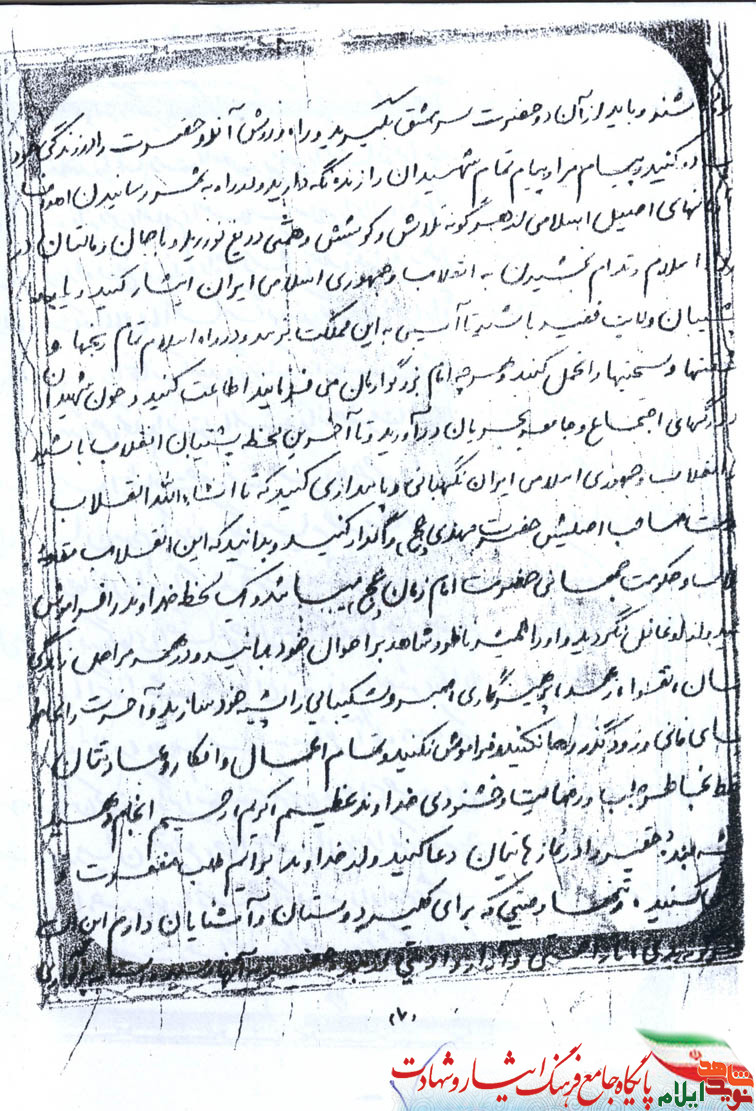 شند و باید از آن دو حضرت سرمشق بگیرید و راه و روش آندو حضرت را در زندگی خود
پیاده کنید و پیام مرا و پیام تمام شهیدان را زنده نگه دارید و در راه به ثمر رسانیدن اهداف
آرمانهای اصیل اسلامی از هیچگونه تلاش و کوشش و همتی دریغ نورزید و با جان و مالتان در
راه اسلام و تداوم بخشیدن به انقلاب و جمهوری اسلامی ایران ایثار کنید و
پشتیبان ولایت فقیه باشید تا آسیبی به این مملکت نرسد و در راه اسلام تمام رنجها و
مشقتها و سختیها را تحمل کنید و هر چه امام بزرگوارمان می فرمایند اطاعت کنید و خون شهیدان
را در رگهای اجتماع و جامعه بجریان در آورید و تا آخرین لحظه پشتیبان انقلاب باشید
از انقلاب و جمهوری اسلامی ایران نگهبانی و پاسداری کنید که تا انشاءالله انقلاب
بدست صاحب اصلیش حضرت مهدی (عج) واگذار کنید و بدانید که این انقلاب مقدمه
انقلاب و حکومت جهانی حضرت امام زمان (عج) میباشد و یک لحظه خداوند را فراموش
نکنید و از او غافل نگردید و او را همیشه ناظر و شاهد بر احوال خود بدانید و در همه مراحل زندگی
تان، تقوا، زهد، پرهیزگاری، صبر و شکیبایی را پیشه خود سازید و آخرت را بخاطر
دنیای فانی و زودگذر رها نکنید و فراموش نکنید و تمام اعمال و افکار و عبادتتان
فقط بخاطر جلب و رضایت و خشنودی خداوند عظیم، کریم، رحیم انجام دهید
بنده حقیر را در نمازهایتان دعا کنید و از خداوند برایم طلب مغفرت و
کنید، و تنها وصیتی که برای کلیه دوستان و آشنایان دارم این است
(۷)
پایگاه جامع فرهنگ ایثار و شهادت
نوید شاهد ایلام